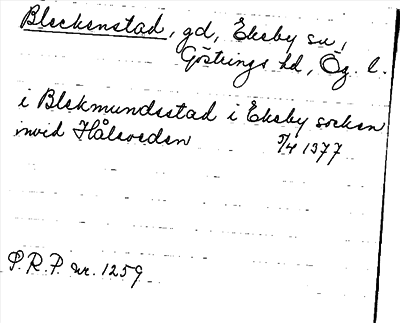 Bleckenstad, gd, Ekeby sn,
Göstrings hd, Ög. l.
i Blekmundsstad i Ekeby socken
invid Hålaveden 5/4 1377
P.R.P. nr. 1259